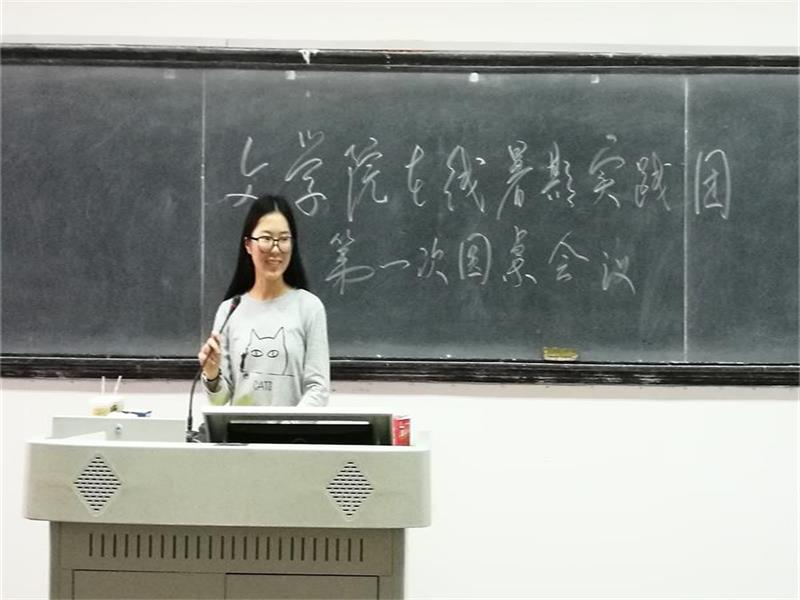 文学院在线暑期实践团
第一次圆桌会议
CATS